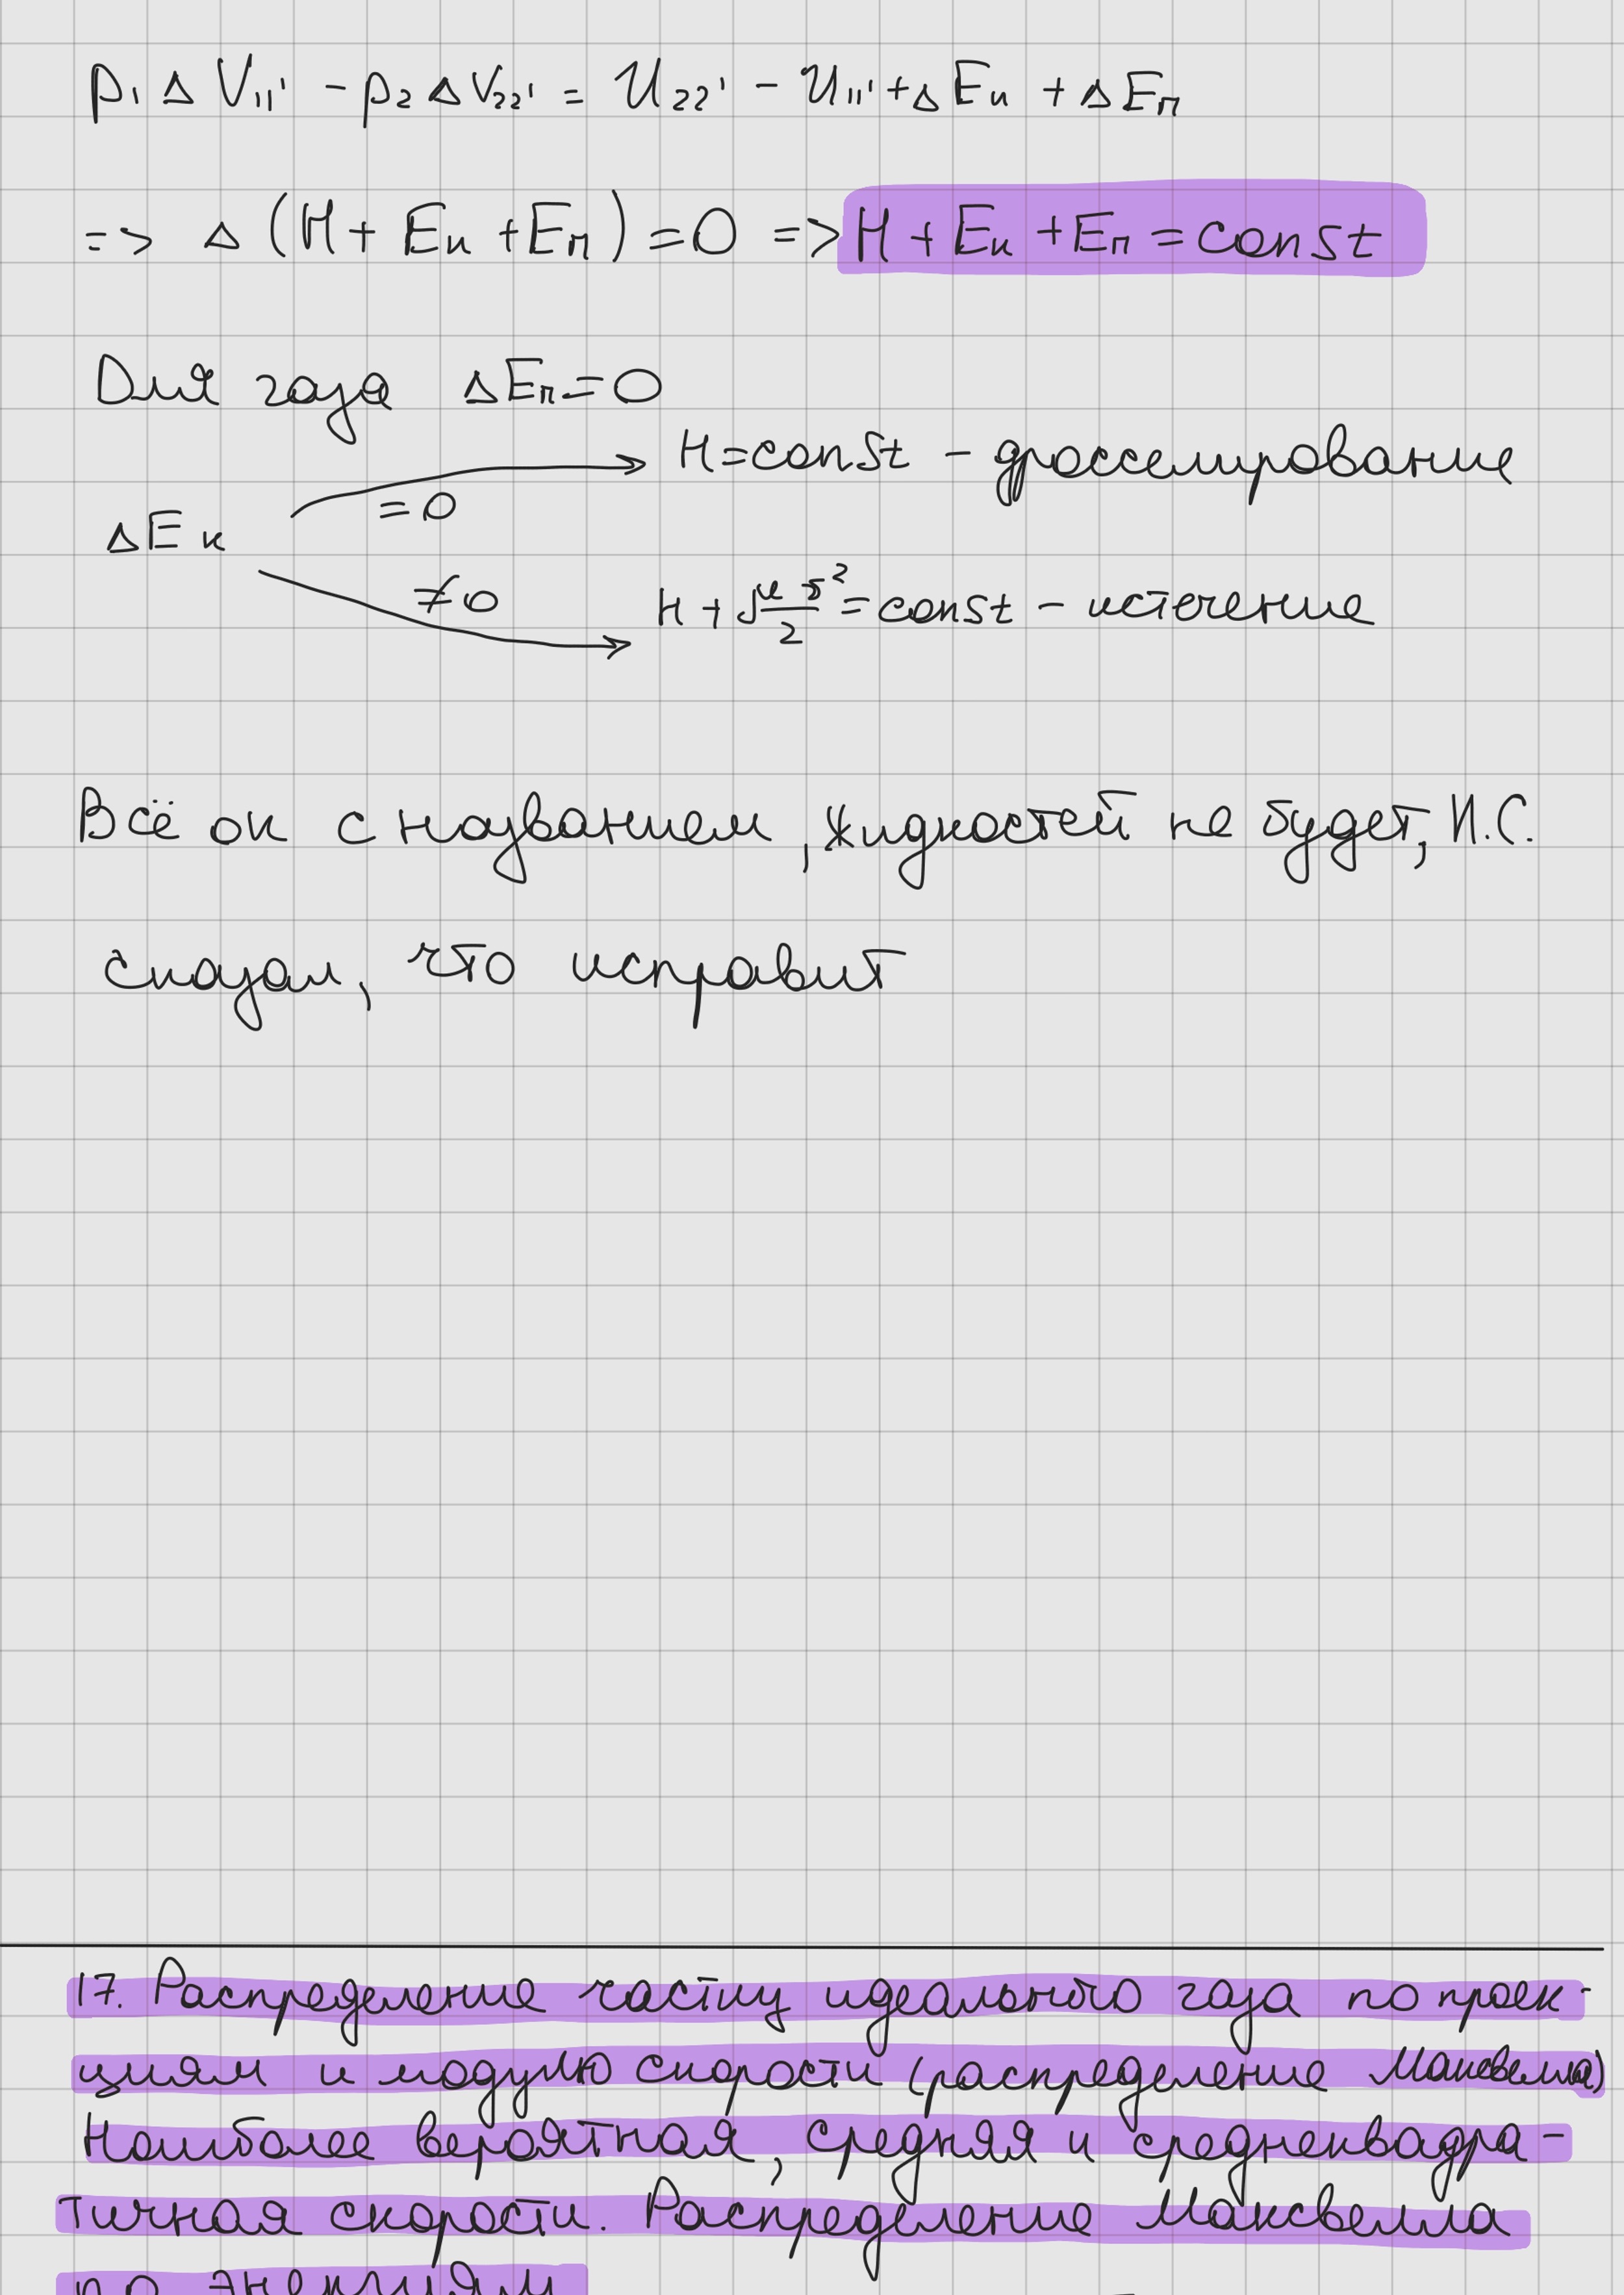 p₁ΔV₁₁' - p₂ΔV₂₂' = U₂₂' - U₁₁' + ΔEк + ΔEп
=> Δ(H + Eк + Eп) = 0 => H + Eк + Eп = const
Для газа ΔEп = 0
=0 H = const - дросселирование
ΔEк
≠0 H + μv²/2 = const - истечение
Всё ок с названием, жидкостей не будет, И.С.
сказал, что исправит
17. Распределение частиц идеального газа по проек-
циям и модулю скорости (распределение Максвелла)
Наиболее вероятная, средняя и среднеквадра-
тичная скорости. Распределение Максвелла
по энергиям